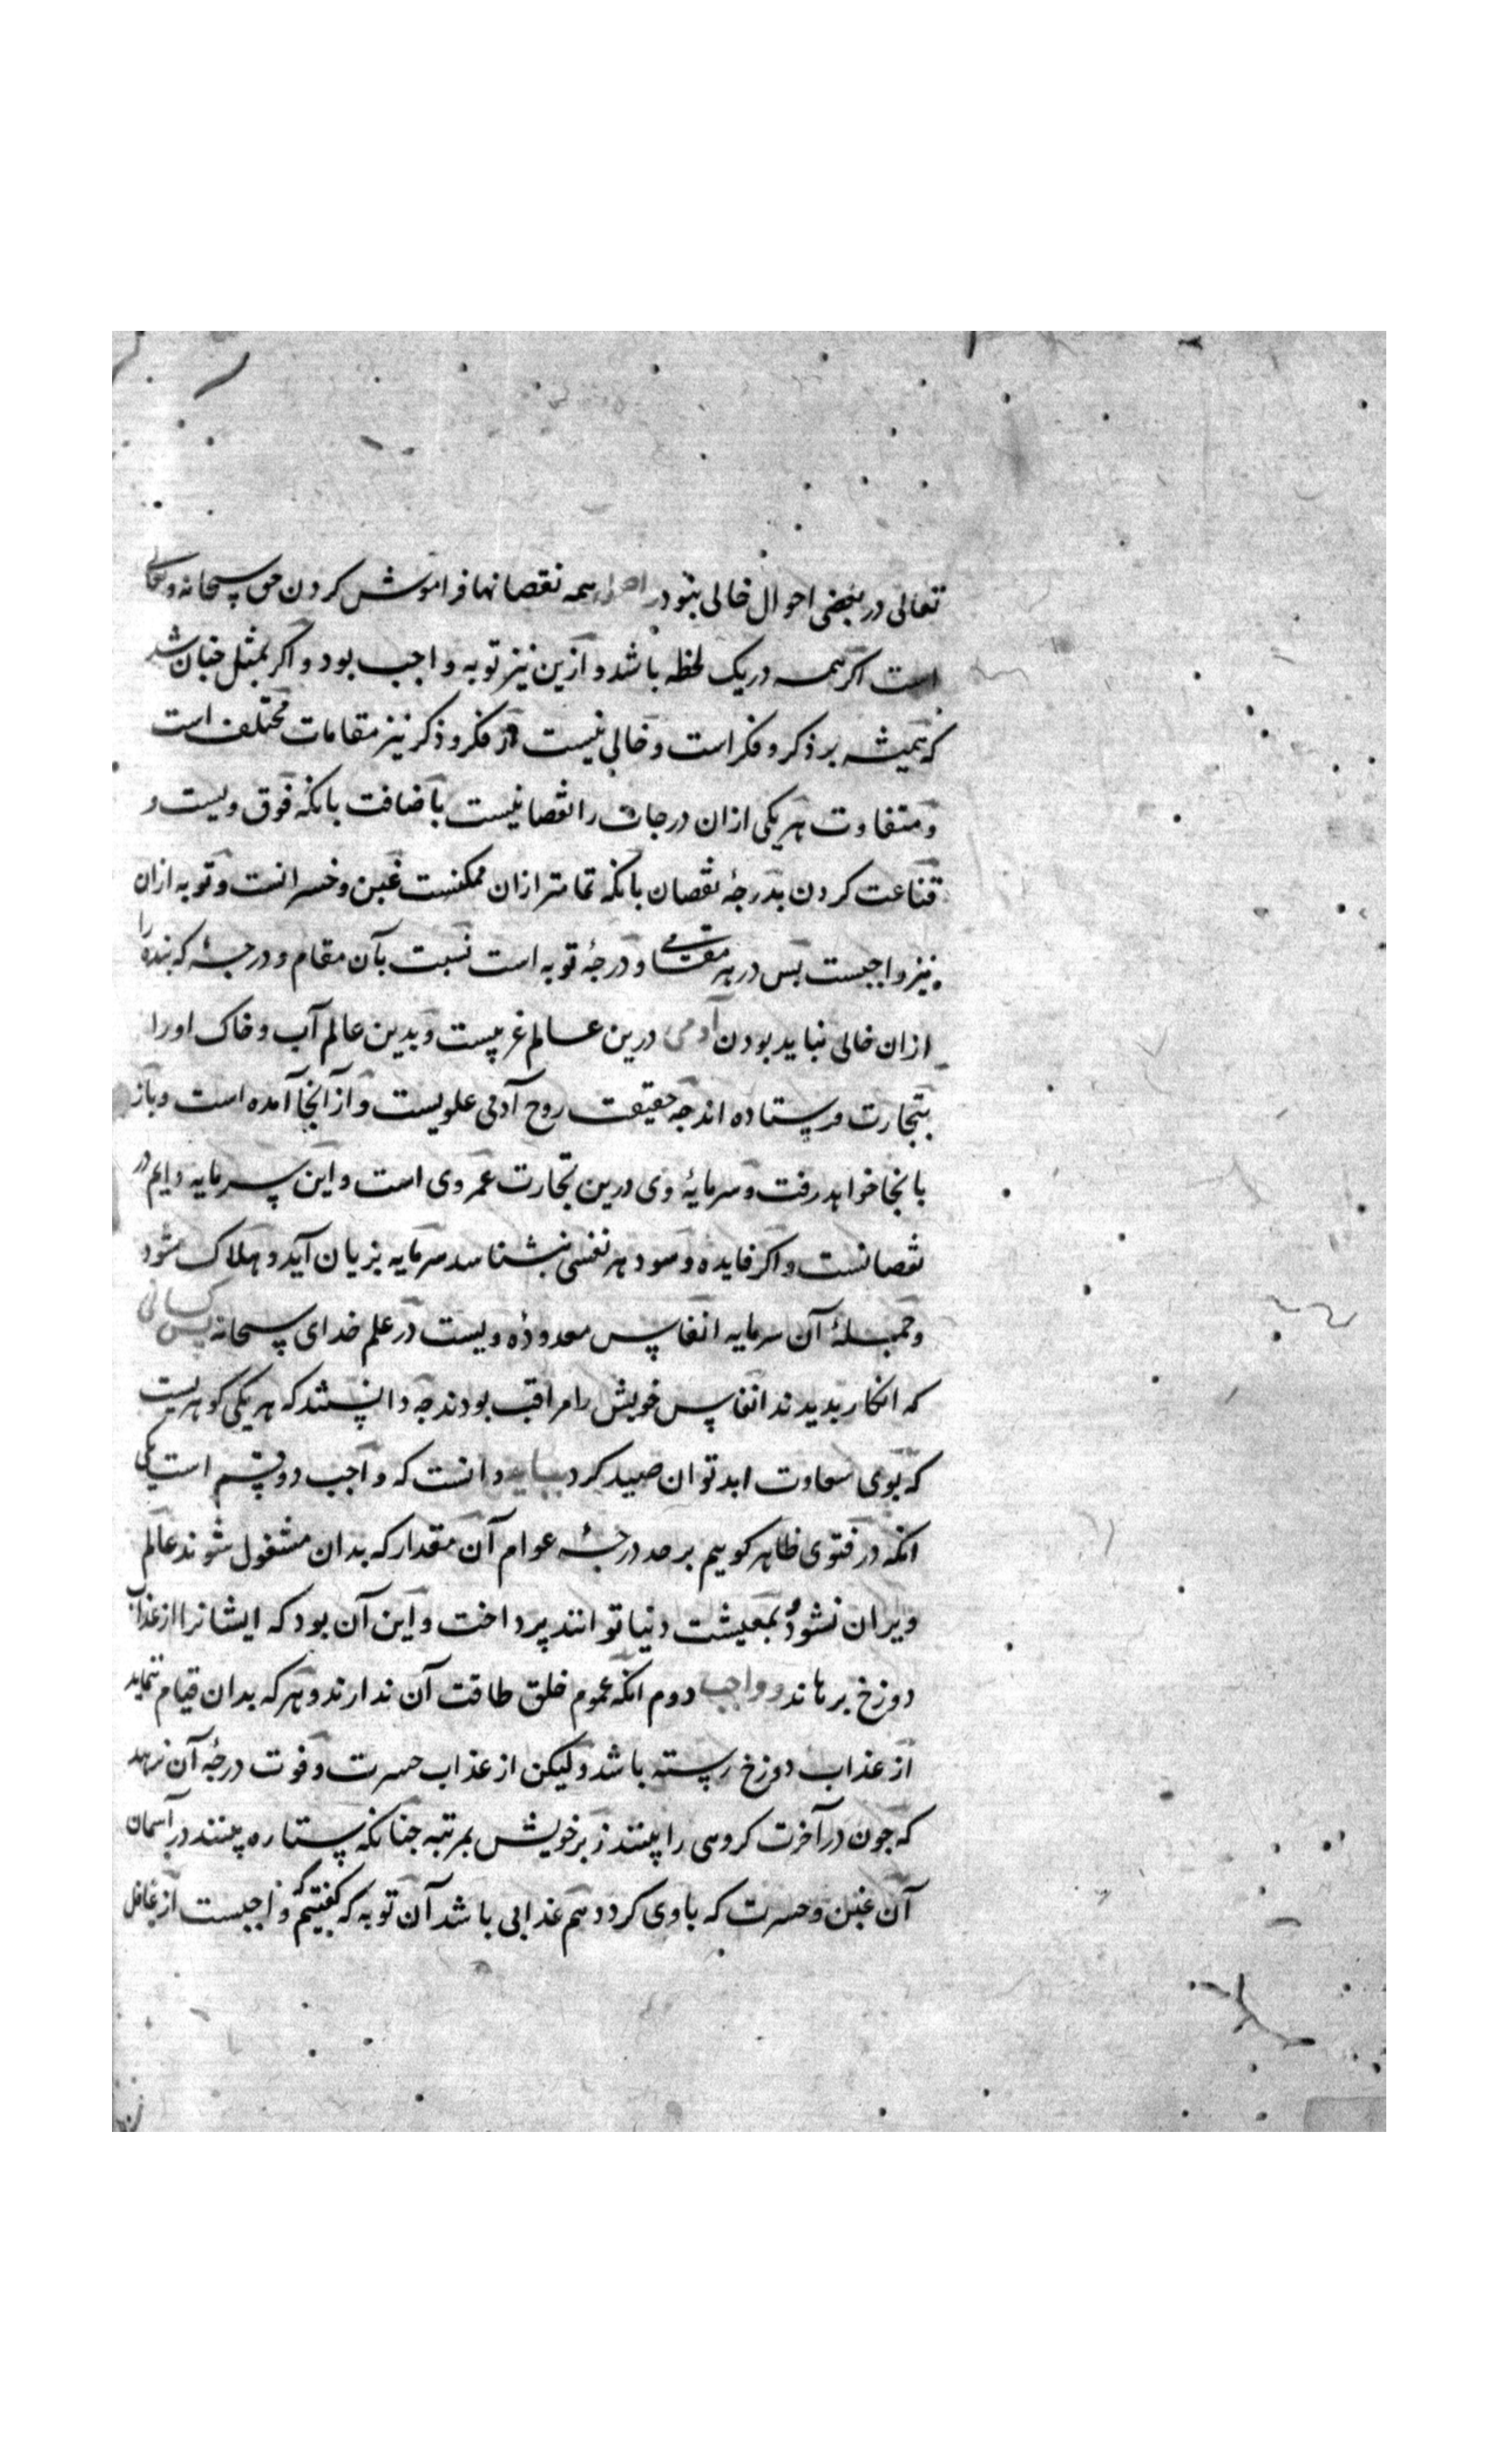 تعالی در بعضی احوال خالی نبود و اصل همه نقصانها فراموش کردن حق سبحانه و تعالی
است اکر همه در یک لحظه باشد و ازین نیز توبه واجب بود و اکر بمثل جنان شد
که همیشه بر ذکر و فکر است و خالی نیست از فکر و ذکر نیز مقامات مختلف است
و متفاوت هر یکی ازان درجات را نقصانیست باضافت بانکه فوق ویست و
قناعت کردن بدرجهٔ نقصان بانکه تمامتر ازان ممکنست غبن و خسرانست و توبه ازان
نیز واجبست بس در هر مقامی و درجهٔ توبه است نسبت بآن مقام و درجهٔ که بنده را
ازان خالی نباید بودن آدمی درین عالم غریبست و بدین عالم آب و خاک او را
بتجارت فرستاده اند جه حقیقت روح آدمی علویست و از آنجا آمده است و باز
بانجا خواهد رفت و سرمایهٔ وی درین تجارت عمر وی است و این سرمایه دایم در
نقصانست و اکر فایده و سود هر نفسی نشناسد سرمایه بزیان آید و هلاک شود
و جملهٔ آن سرمایه انفاس معدوده ویست در علم خدای سبحانه بس کسانی
که انکار بدیدند انفاس خویش را مراقب بودند جه دانستند که هر یکی کوهریست
که بوی سعادت ابد توان صید کرد بباید دانست که واجب دو قسم است یکی
انکه در فتوی ظاهر کوییم بر حد درجهٔ عوام آن مقدار که بدان مشغول شوند عالم
ویران نشود و بمعیشت دنیا توانند پرداخت و این آن بود که ایشانرا از عذاب
دوزخ برهاند و واجب دوم انکه عموم خلق طاقت آن ندارند و هر که بدان قیام ننماید
از عذاب دوزخ رسته باشد ولیکن از عذاب حسرت و فوت درجهٔ آن نرهد
که جون در آخرت کروهی را بینند زبر خویش بمرتبه جنانکه ستاره بینند در آسمان
آن غبن و حسرت که با وی کردد هم عذابی باشد آن توبه که کفتیم که واجبست از غافل